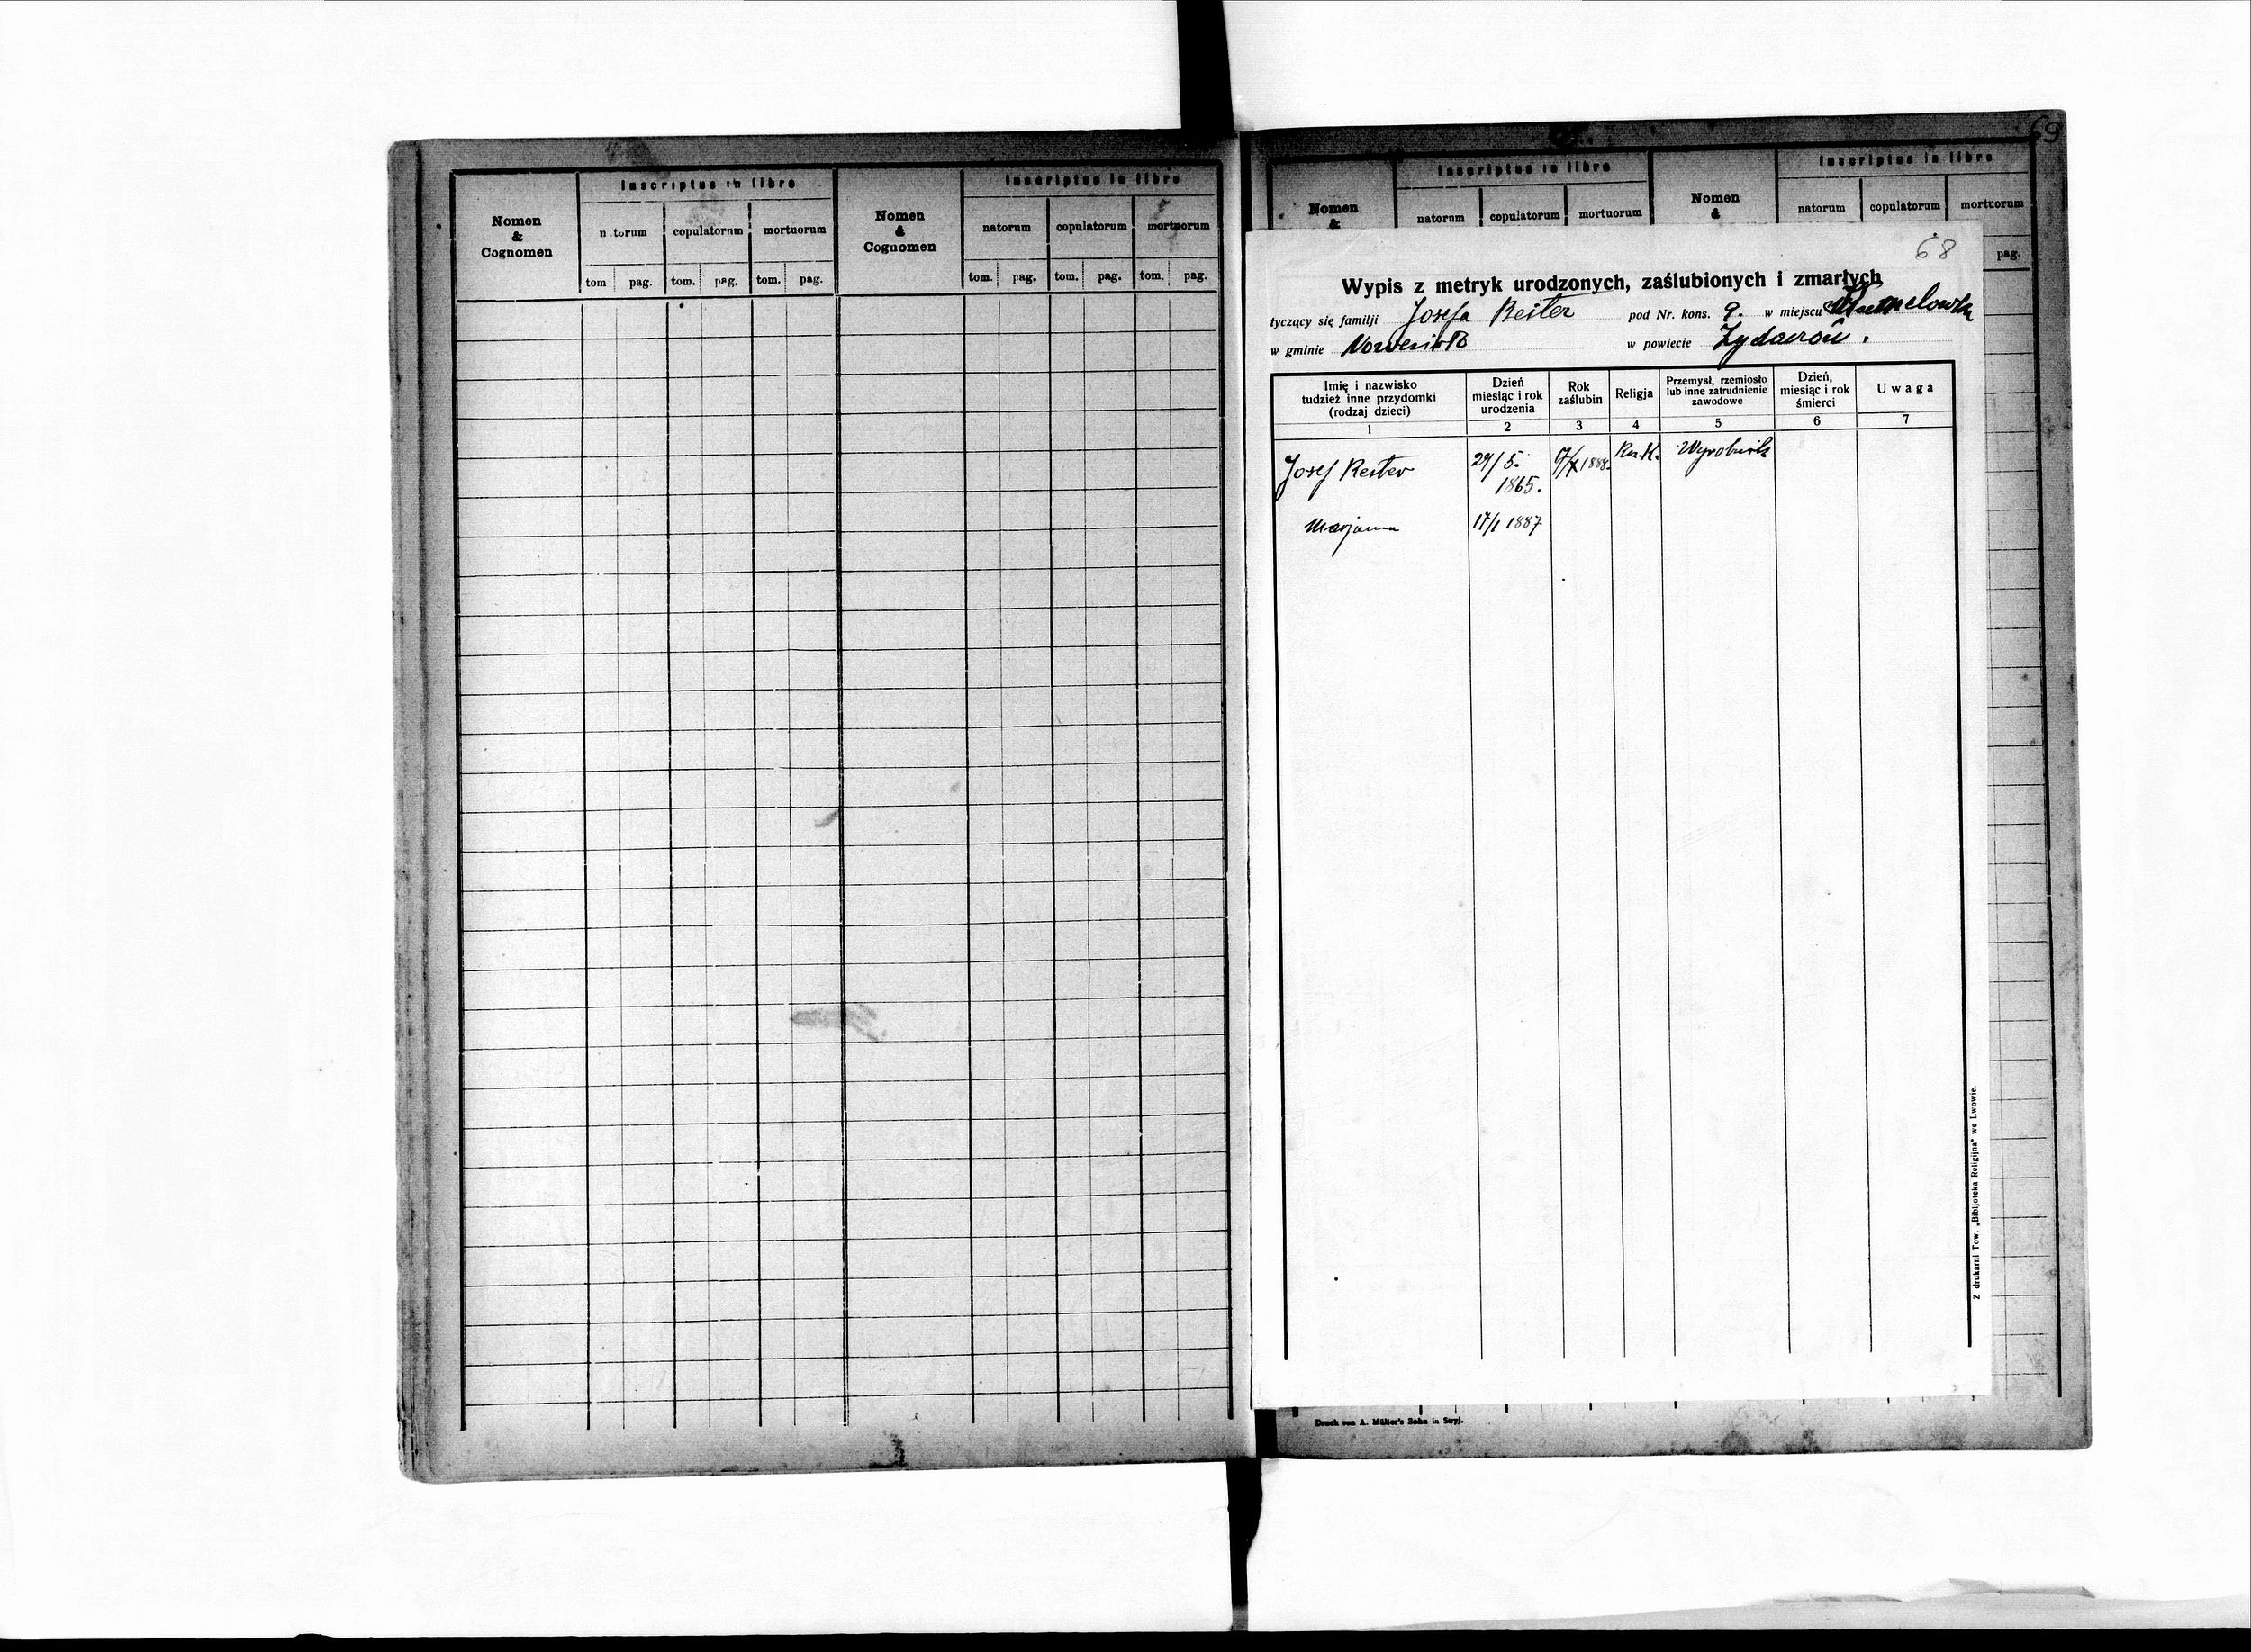 Nomen
&
Cognomen
Inscriptus in libro
n torum
copulatorum
mortuorum
tom
pag.
tom.
pag.
tom.
pag.
Nomen
&
Cognomen
Inscriptus in libro
natorum
copulatorum
mortuorum
tom.
pag.
tom.
pag.
tom.
pag.
69
Nomen
&
Inscriptus in libro
natorum
copulatorum
mortuorum
Nomen
&
Inscriptus in libro
natorum
copulatorum
mortuorum
pag.
68
Wypis z metryk urodzonych, zaślubionych i zmarłych
tyczący się familji Josefa Reiter pod Nr. kons. 9. w miejscu
w gminie w powiecie
Imię i nazwisko
tudzież inne przydomki
(rodzaj dzieci)
1
Dzień
miesiąc i rok
urodzenia
2
Rok
zaślubin
3
Religja
4
Przemysł, rzemiosło
lub inne zatrudnienie
zawodowe
5
Dzień,
miesiąc i rok
śmierci
6
Uwaga
7
Josef Reiter 1865. 1888. Rz.K. Wyrobnik
Marjanna 17/1 1887
Z drukarni Tow. „Bibljoteka Religijna" we Lwowie.
Druck von A. Müller's Sohn in Stryj.